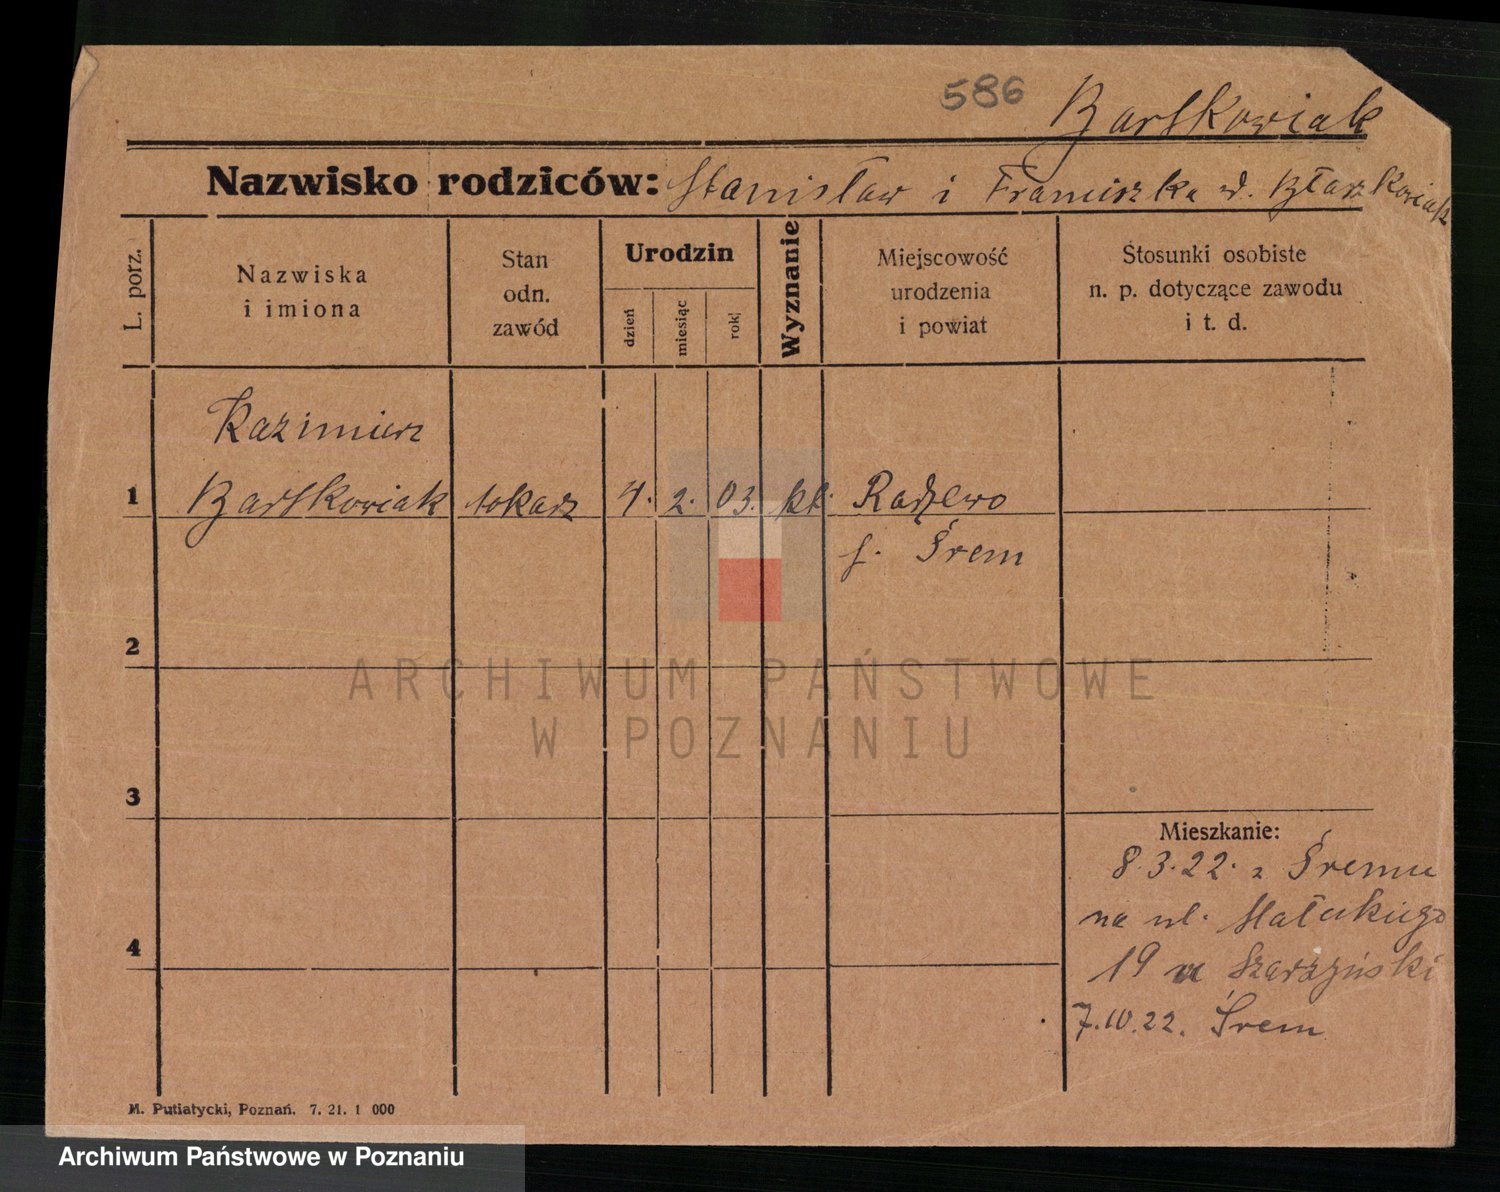 586
Bartkowiak
Nazwisko rodziców: Stanisław i Franciszka d. Błaszkowiak
L. porz.
Nazwiska
i imiona
Stan
odn.
zawód
Urodzin
dzień
miesiąc
rok
Wyznanie
Miejscowość
urodzenia
i powiat
Stosunki osobiste
n. p. dotyczące zawodu
i t. d.
Kazimierz
1 Bartkowiak tokarz 4. 2. 03. kt. Radzewo
Śrem
2
3
Mieszkanie:
8.3.22. z Śremu
na ul. Małeckiego
4
19 u Szarzyński
7.10.22. Śrem
M. Putiatycki, Poznań. 7. 21. 1 000
ARCHIWUM PAŃSTWOWE
W POZNANIU
Archiwum Państwowe w Poznaniu